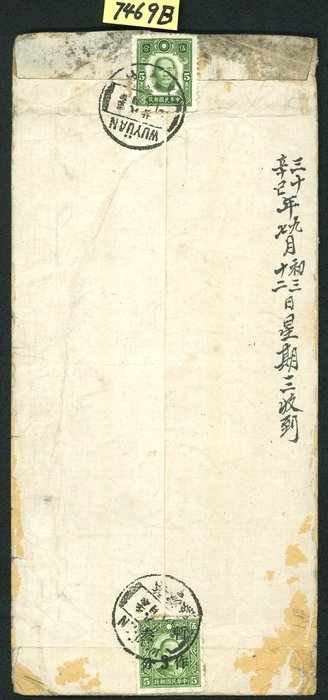 7469B
5 5
中華民國郵政
WUYÜAN
三十年九月初三日星期三收到
辛巳 七 十二
暫作
叁分
中華民國郵政
5 5